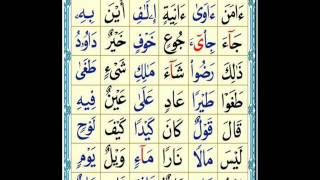 ءَامَنَ ءَاوَىٰ ءَانِيَةٍ إِۦلَـٰفِ أَيْنَ بِهِۦ
جَآءَ جِاىْٓءَ جُوعٍ خَوْفٍ خَيْرٌ دَاوُۥدُ
ذَٰلِكَ رَضُوا۟ شَآءَ مَـٰلِكِ شَىْءٍ طَغَىٰ
طَغَوْا۟ طَيْرًا عَادٍ عَلَىٰ عَيْنٌ فِيهِ
قَالَ قَوْلٌ كَانَ كَيْدًا كَيْفَ لَوْحٍ
لَيْسَ مَالًا نَارًا مَآءٍ وَيْلٌ يَوْمٍ